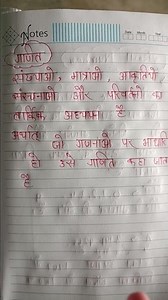 Notes
गणित
संख्याओं, मात्राओं, आकृतियों
संरचनाओं और परिवर्तनों का
तार्किक अध्ययन है
अर्थात
जो गणनाओं पर आधारि
हो उसे गणित कहा जात
है